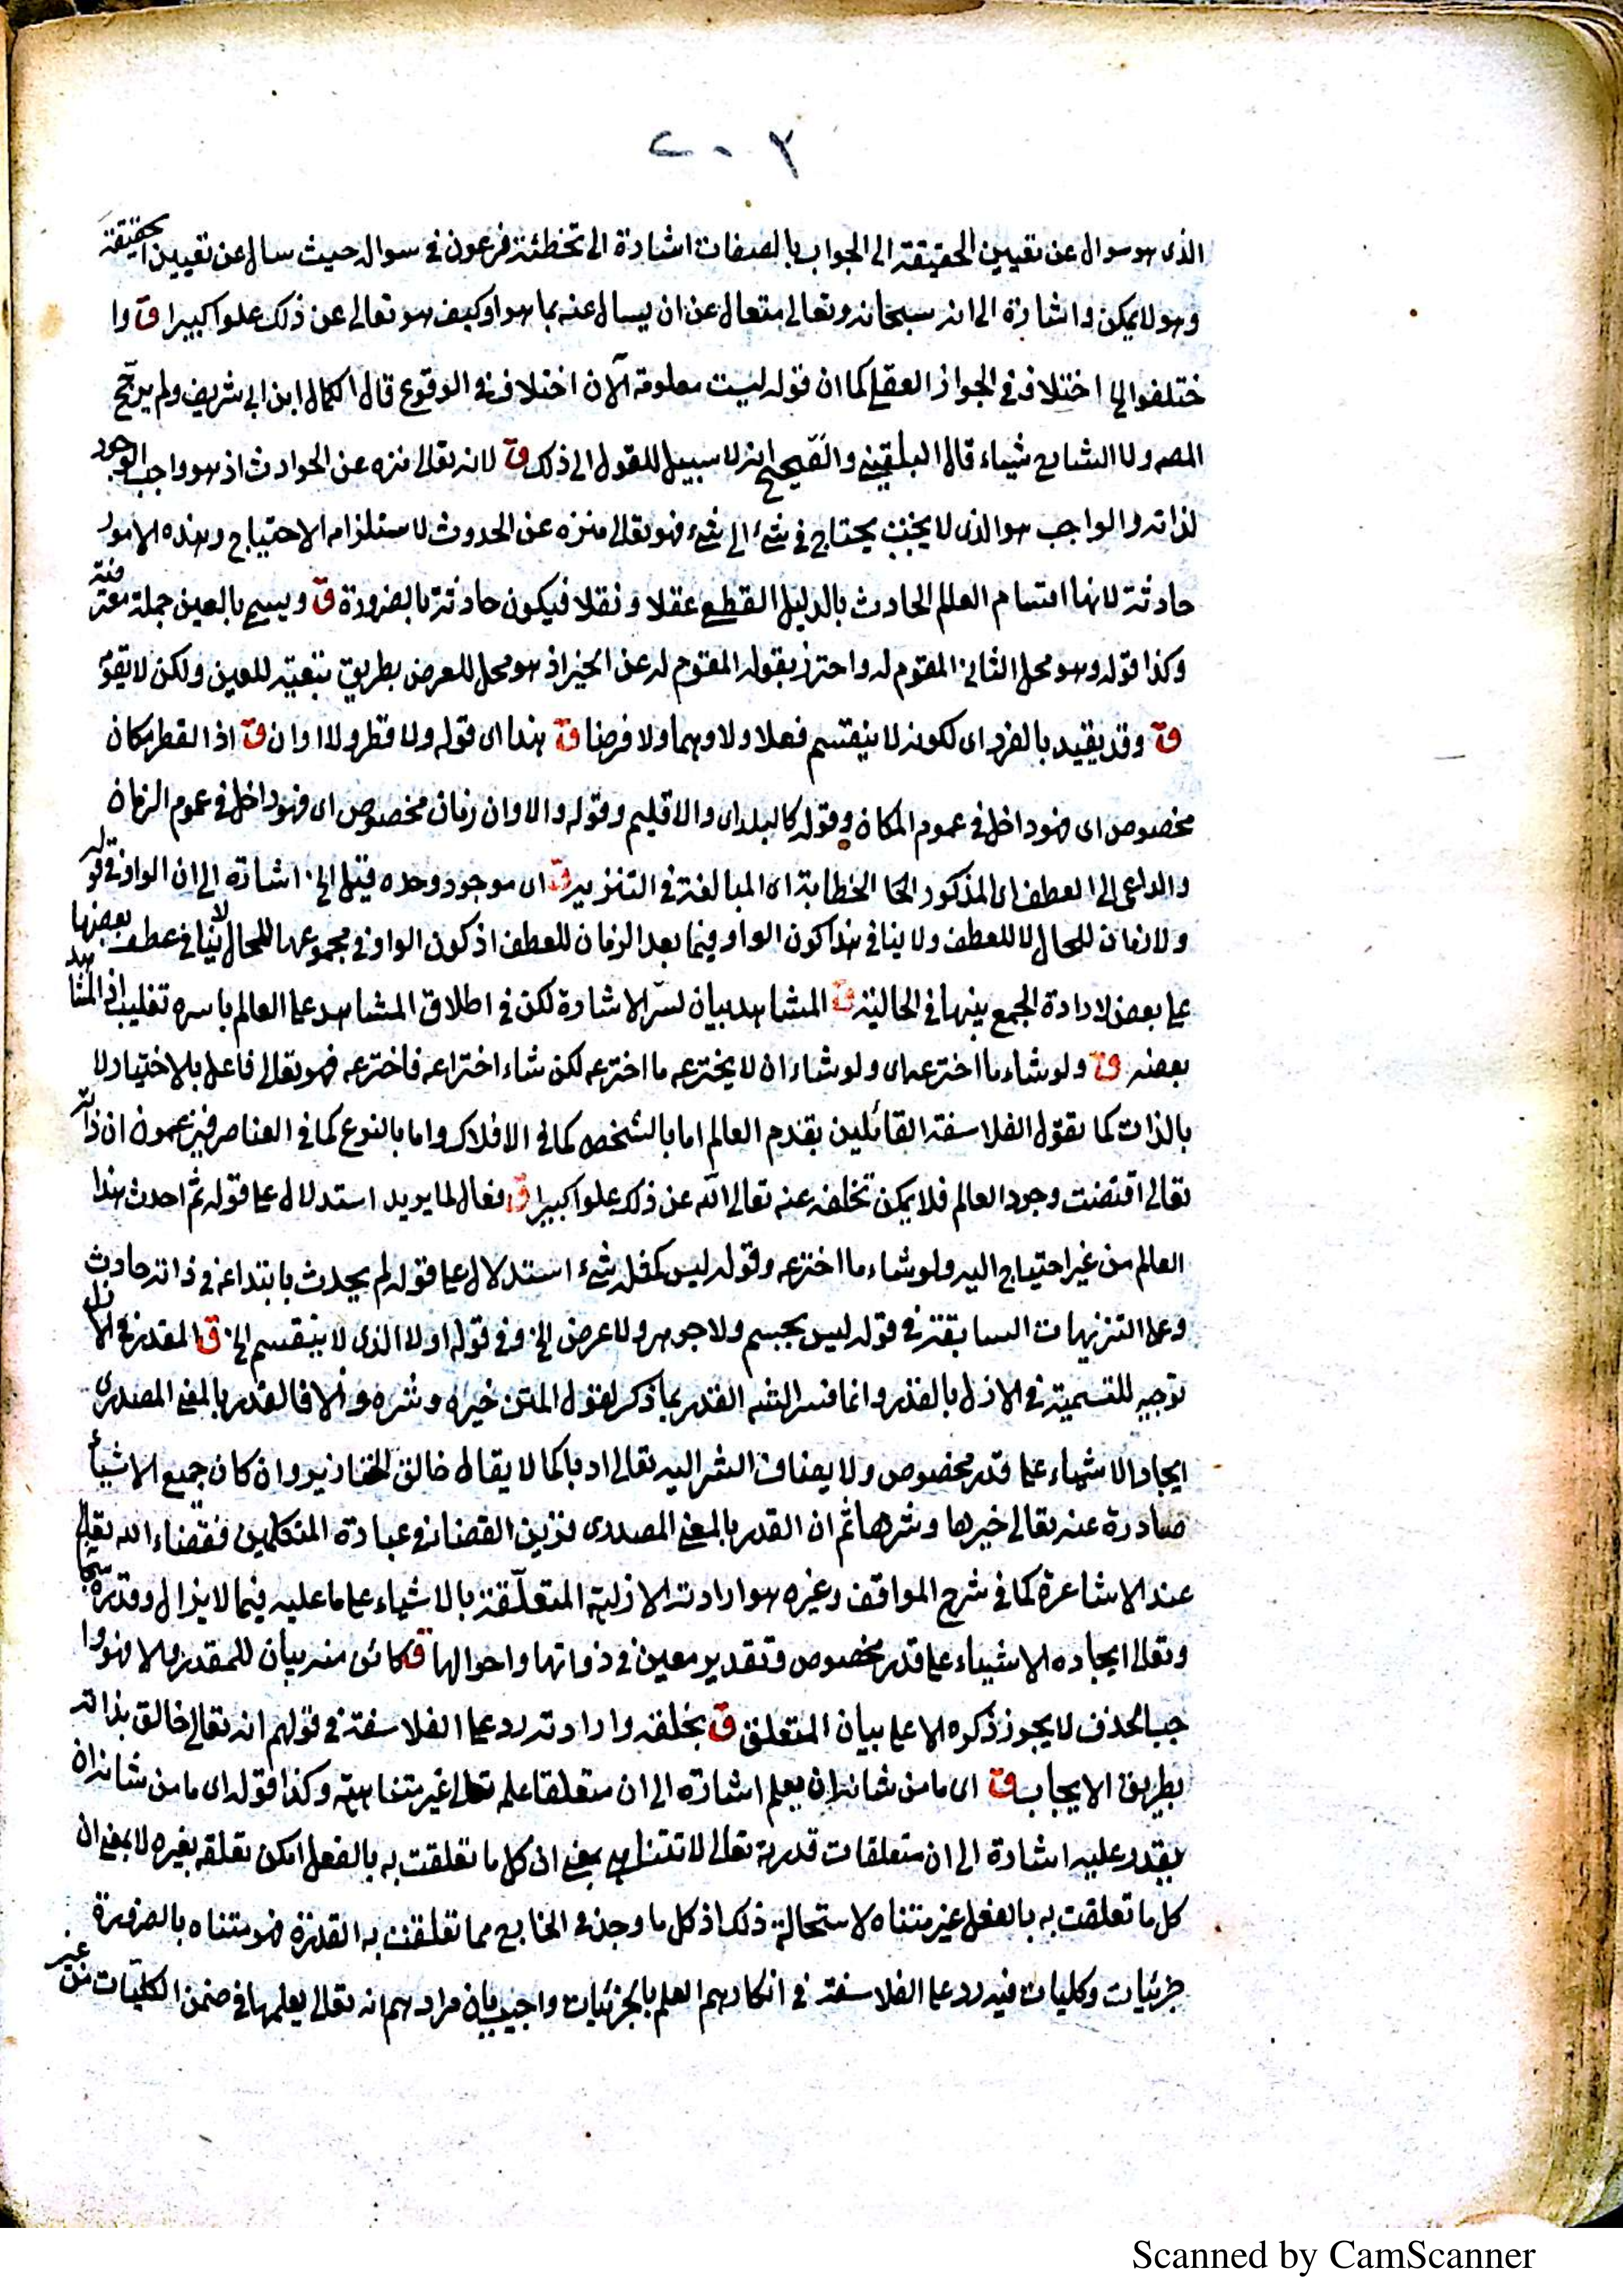 ٢٠٣
الذى هو سوال عن تعيين الحقيقة الى الجواب بالصفات اشارة الى تخطئة فرعون في سواله حيث سال عن تعيين الحقيقة
وهو لا يمكن واشارة الى انه سبحانه وتعالى متعال عن ان يسال عنه بما هو او كيف هو تعالى عن ذلك علوا كبيرا ق وا
ختلفوا الى اختلاف في الجواز العقلي كما ان قوله ليست معلومة الآن اختلاف في الوقوع قال الكمال ابن ابي شريف ولم يرجّح
المصه ولا الشارح شيئاء قال البلقيني والصّحيح انه لا سبيل للقول الى ذلك ق لانه تعالى منزه عن الحوادث اذ هو واجب الوجود
لذاته والواجب هو الذى لا يحتاج في شئ الى شئ فهو تعالى منزه عن الحدوث لاستلزامه الاحتياج وهذه الامور
حادثة لانها اقسام العالم الحادث بالدليل القطعي عقلا ونقلا فيكون حادثة بالضرورة ق ويسمى بالعين جملة معترضة
وكذا قوله وهو محل الثاني المقوم له واحترز بقوله المقوم له عن الحيز اذ هو محل للعرض بطريق تبعيّة للعين ولكن لا يقوّ
ق وقد يقيد بالفرد اى لكونه لا ينقسم فعلا ولا وهما ولا فرضا ق هذا اى قوله ولا قطر ولا اوان ق اذ القطر مكان
مخصوص اى فهو داخل في عموم المكان وقوله كالبلد اى والاقليم وقوله والاوان زمان مخصوص اى فهو داخل في عموم الزمان
والداعى الى العطف اى المذكور الخطابة اى المبالغة في التنزيه ق اى موجود وحده قيل الى اشارة الى ان الواو في قوله
ولا زمان للحال لا للعطف ولا ينافي هذا كون الواو فيما بعد الزمان للعطف اذ كون الواو في مجموعها للحال لا ينافي عطف بعضها
على بعض لارادة الجمع بينها في الحالية ق المشاهد بيان لسرّ الاشارة لكن في اطلاق المشاهد على العالم باسره تغليب اذ المشاهد
بعضه ق ولو شاء ما اخترعه اى ولو شاء ان لا يخترعه ما اخترعه لكن شاء اختراعه فاخترعه فهو تعالى فاعل بالاختيار لا
بالذات كما يقول الفلاسفة القائلين بقدم العالم اما بالشخص كما في الافلاك واما بالنوع كما في العناصر فيزعمون ان ذاته
تعالى اقتضت وجود العالم فلا يمكن تخلفه عنه تعالى الله عن ذلك علوا كبيرا ق فعال لما يريد استدلال على قوله ثم احدث هذا
العالم من غير احتياج اليه ولو شاء ما اخترعه وقوله ليس كمثله شئ استدلال على قوله لم يحدث بابتداعه في ذاته حادث
وعلى التنزيهات السابقة في قوله ليس بجسم ولا جوهر ولا عرض الخ وفي قوله اولا الذى لا ينقسم الخ ق المقدر في الازل
توجيه للتسمية في الازل بالقدر وانما فسر الشه القدر بما ذكر لقول المتن خيره وشره والا فالقدر بالمعنى المصدرى
ايجاد الاشياء على قدر مخصوص ولا يضاف الشر اليه تعالى ادبا كما لا يقال خالق الخنازير وان كان جميع الاشيأ
صادرة عنه تعالى خيرها وشرها ثم ان القدر بالمعنى المصدرى قرين القضاء في عبارة المتكلمين فقضاء الله تعالى
عند الاشاعرة كما في شرح المواقف وغيره هو ارادته الازلية المتعلّقة بالاشياء على ما عليه فيما لا يزال وقدره سبحانه
وتعالى ايجاده الاشياء على قدر مخصوص وتقدير معين في ذواتها واحوالها ق كائن منه بيان للمقدر والا فهو وا
جب الحذف لا يجوز ذكره الا على بيان المتعلق ق بخلقه وارادته رد على الفلاسفة في قولهم انه تعالى خالق بذاته
بطريق الايجاب ق اى ما من شانه ان يعلم اشارة الى ان متعلقا علمه تعالى غير متناهية وكذا قوله اى ما من شانه ان
يقدر عليه اشارة الى ان متعلقات قدرته تعالى لا تتناهى بمعنى ان كل ما تعلقت به بالفعل امكن تعلقه بغيره لا بمعنى ان
كل ما تعلقت به بالفعل غير متناه لاستحالة ذلك اذ كل ما وجد في الخارج مما تعلقت به القدرة فهو متناه بالضرورة
جزئيات وكليات فيه رد على الفلاسفة في انكارهم العلم بالجزئيات واجيب بان مرادهم انه تعالى يعلمها في ضمن الكليّات من غير
Scanned by CamScanner